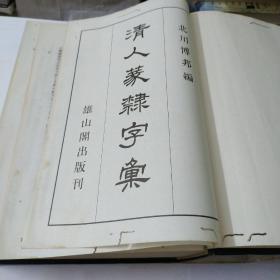 北川博邦 編
清人篆隸字彙
雄山閣出版刊